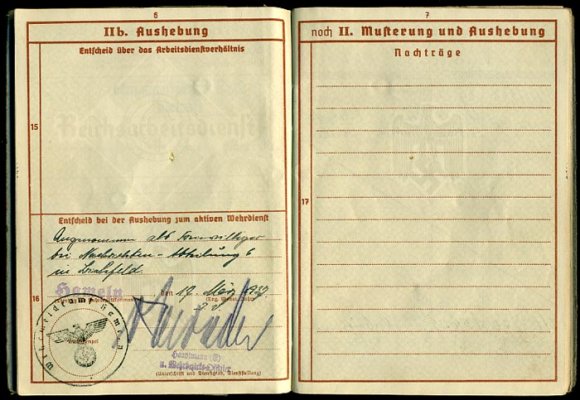 6
IIb. Aushebung
Entscheid über das Arbeitsdienstverhältnis
15
Reichsarbeitsdienst
Entscheid bei der Aushebung zum aktiven Wehrdienst
Angenommen als Freiwilliger
bei Nachrichten-Abteilung 6
in Bielefeld
16
Hameln
den 19. März 1937
Hauptmann (E)
u. Wehrbezirks-Offizier
(Unterschrift und Dienstgrad, Dienststellung)
7
noch II. Musterung und Aushebung
Nachträge
17